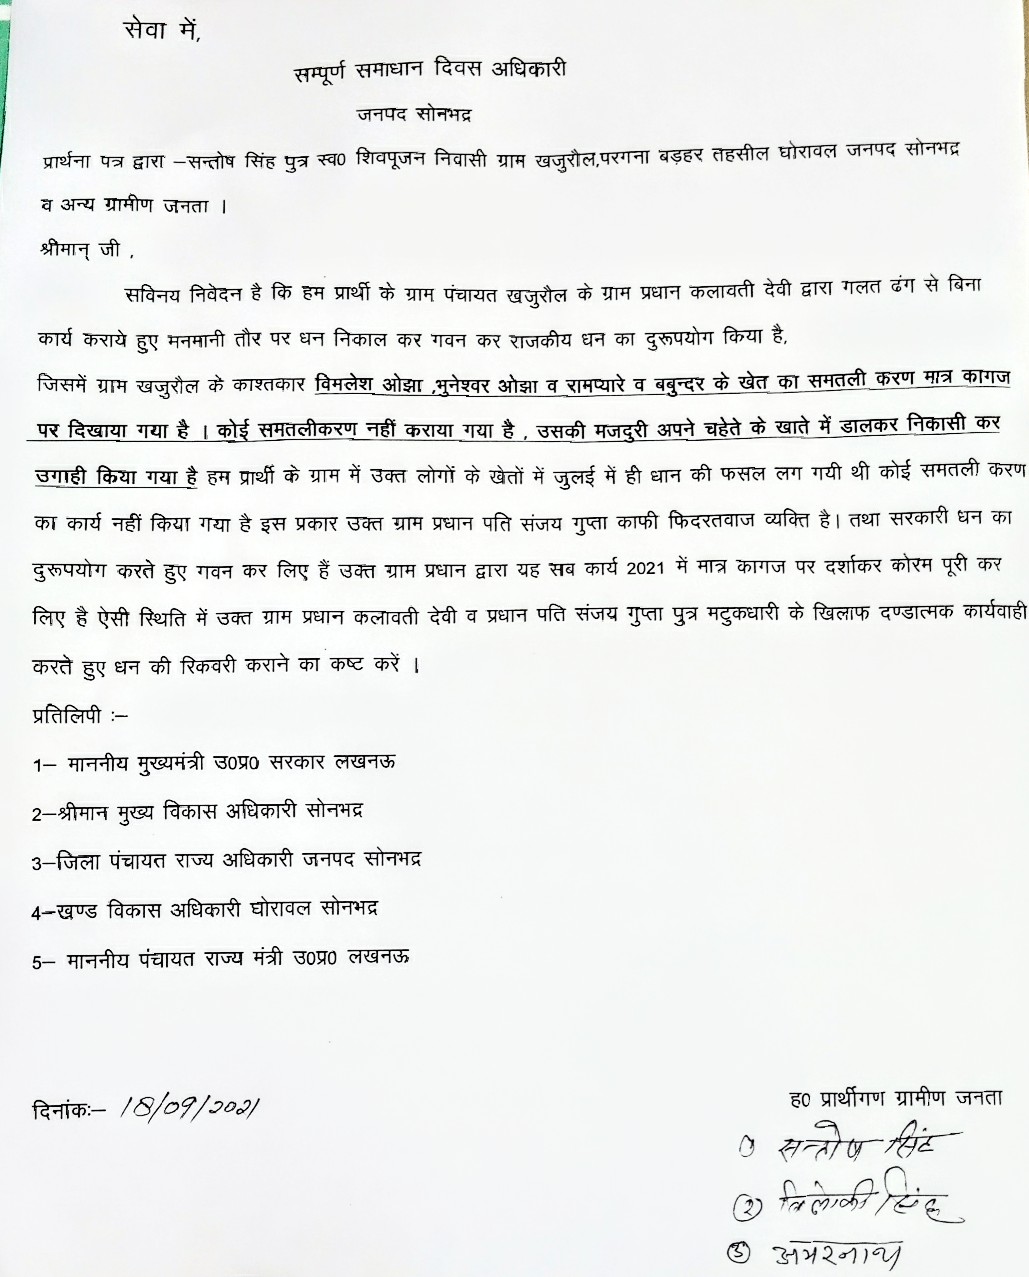 सेवा में,
सम्पूर्ण समाधान दिवस अधिकारी
जनपद सोनभद्र
प्रार्थना पत्र द्वारा –सन्तोष सिंह पुत्र स्व0 शिवपूजन निवासी ग्राम खजुरौल,परगना बड़हर तहसील घोरावल जनपद सोनभद्र
व अन्य ग्रामीण जनता ।
श्रीमान् जी ,
सविनय निवेदन है कि हम प्रार्थी के ग्राम पंचायत खजुरौल के ग्राम प्रधान कलावती देवी द्वारा गलत ढंग से बिना
कार्य कराये हुए मनमानी तौर पर धन निकाल कर गवन कर राजकीय धन का दुरूपयोग किया है,
जिसमें ग्राम खजुरौल के काश्तकार विमलेश ओझा ,भुनेश्वर ओझा व रामप्यारे व बबुन्दर के खेत का समतली करण मात्र कागज
पर दिखाया गया है । कोई समतलीकरण नहीं कराया गया है , उसकी मजदुरी अपने चहेते के खाते में डालकर निकासी कर
उगाही किया गया है हम प्रार्थी के ग्राम में उक्त लोगों के खेतों में जुलई में ही धान की फसल लग गयी थी कोई समतली करण
का कार्य नहीं किया गया है इस प्रकार उक्त ग्राम प्रधान पति संजय गुप्ता काफी फिदरतवाज व्यक्ति है। तथा सरकारी धन का
दुरूपयोग करते हुए गवन कर लिए हैं उक्त ग्राम प्रधान द्वारा यह सब कार्य 2021 में मात्र कागज पर दर्शाकर कोरम पूरी कर
लिए है ऐसी स्थिति में उक्त ग्राम प्रधान कलावती देवी व प्रधान पति संजय गुप्ता पुत्र मटुकधारी के खिलाफ दण्डात्मक कार्यवाही
करते हुए धन की रिकवरी कराने का कष्ट करें ।
प्रतिलिपी :–
1– माननीय मुख्यमंत्री उ0प्र0 सरकार लखनऊ
2–श्रीमान मुख्य विकास अधिकारी सोनभद्र
3–जिला पंचायत राज्य अधिकारी जनपद सोनभद्र
4–खण्ड विकास अधिकारी घोरावल सोनभद्र
5– माननीय पंचायत राज्य मंत्री उ0प्र0 लखनऊ
दिनांक:– 18/09/2021
ह0 प्रार्थीगण ग्रामीण जनता
१) सन्तोष सिंह
(२) त्रिलोकी सिंह
(३) अमरनाथ